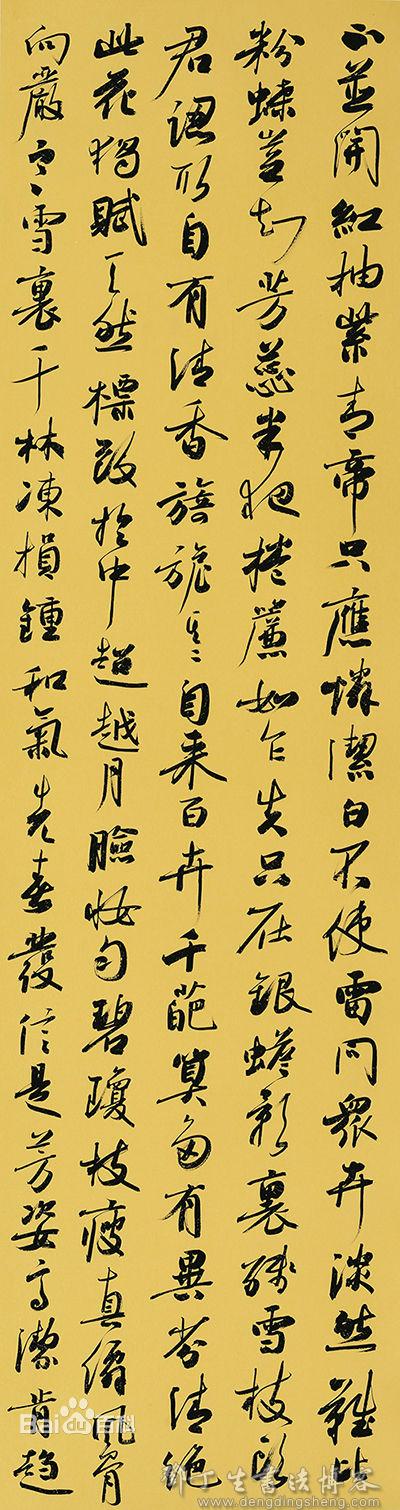 不並開紅抽紫青帝只應憐潔白不使雷同眾卉淡然難比
粉蝶豈知芳蕊半犯捲簾如乍失只在銀蟾影裏殘雪枝頭
君認取自有清香旖旎其二自來百卉千葩算多有異芬清絕
此花獨賦天然標致於中超越月臉妝勻碧瓊枝瘦真個風骨
向嚴冬雪裏千林凍損鍾和氣先春發信是芳姿高潔肯趁
Bai百科
鄧丁生書法博客
www.dengdingsheng.com